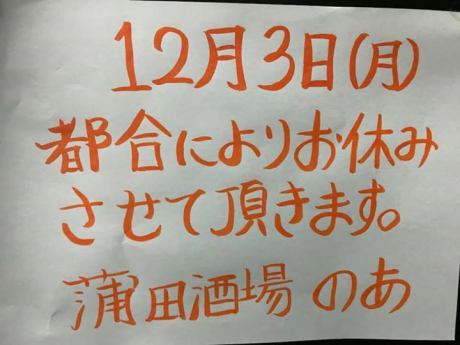 12月3日(月)
都合によりお休み
させて頂きます。
蒲田酒場 のあ